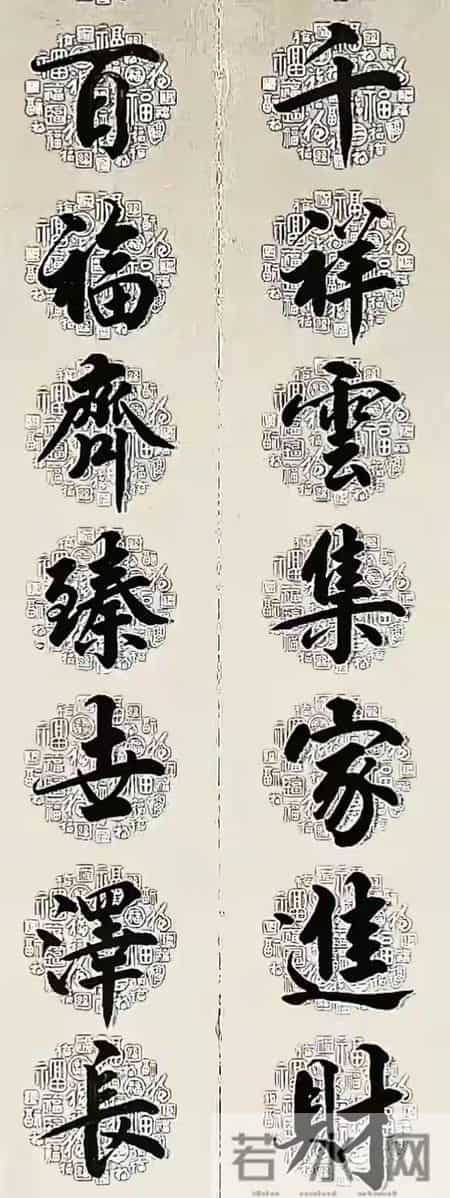 千祥雲集家進財
百福齊臻世澤長
若水网